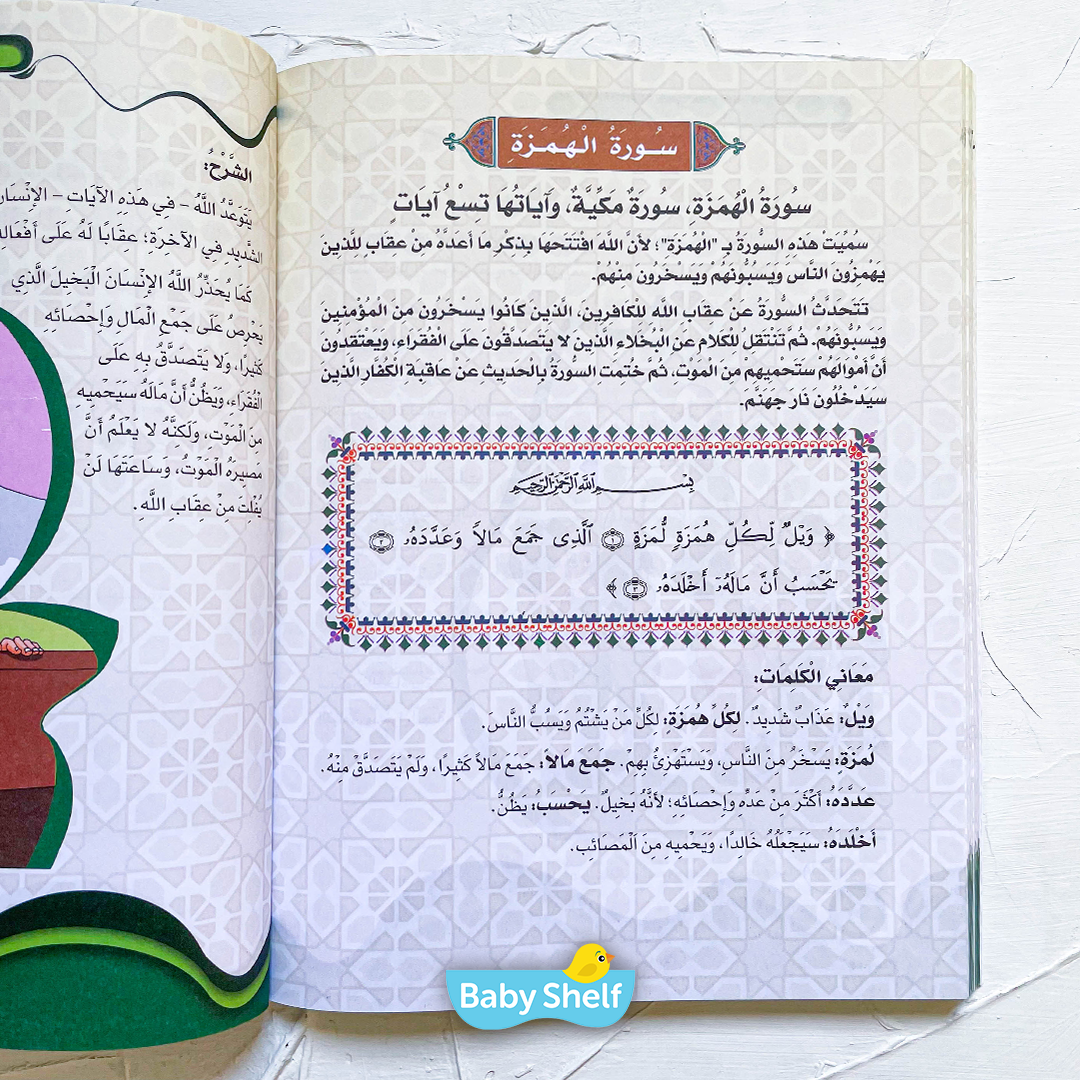 سُورَةُ الْهُمَزَةِ
سُورَةُ الْهُمَزَةِ، سُورَةٌ مَكِّيَّةٌ، وَآيَاتُهَا تِسْعُ آيَاتٍ
سُمِّيَتْ هَذِهِ السُّورَةُ بِـ "الْهُمَزَةِ"؛ لأَنَّ اللهَ افْتَتَحَهَا بِذِكْرِ مَا أَعَدَّهُ مِنْ عِقَابٍ لِلَّذِينَ
يَهْمِزُونَ النَّاسَ وَيَسُبُّونَهُمْ وَيَسْخَرُونَ مِنْهُمْ.
تَتَحَدَّثُ السُّورَةُ عَنْ عِقَابِ اللهِ لِلْكَافِرِينَ، الَّذِينَ كَانُوا يَسْخَرُونَ مِنَ الْمُؤْمِنِينَ
وَيَسُبُّونَهُمْ. ثُمَّ تَنْتَقِلُ لِلْكَلَامِ عَنِ الْبُخَلَاءِ الَّذِينَ لَا يَتَصَدَّقُونَ عَلَى الْفُقَرَاءِ، وَيَعْتَقِدُونَ
أَنَّ أَمْوَالَهُمْ سَتَحْمِيهِمْ مِنَ الْمَوْتِ، ثُمَّ خُتِمَتِ السُّورَةُ بِالْحَدِيثِ عَنْ عَاقِبَةِ الْكُفَّارِ الَّذِينَ
سَيَدْخُلُونَ نَارَ جَهَنَّمَ.
بِسْمِ اللَّهِ الرَّحْمَنِ الرَّحِيمِ
﴿ وَيْلٌ لِّكُلِّ هُمَزَةٍ لُّمَزَةٍ ١ ٱلَّذِى جَمَعَ مَالاً وَعَدَّدَهُۥ ٢
يَحْسَبُ أَنَّ مَالَهُۥٓ أَخْلَدَهُۥ ٣ ﴾
مَعَانِي الْكَلِمَاتِ:
وَيْلٌ: عَذَابٌ شَدِيدٌ. لِكُلِّ هُمَزَةٍ: لِكُلِّ مَنْ يَشْتُمُ وَيَسُبُّ النَّاسَ.
لُمَزَةٍ: يَسْخَرُ مِنَ النَّاسِ، وَيَسْتَهْزِئُ بِهِمْ. جَمَعَ مَالاً: جَمَعَ مَالاً كَثِيرًا، وَلَمْ يَتَصَدَّقْ مِنْهُ.
عَدَّدَهُ: أَكْثَرَ مِنْ عَدِّهِ وَإِحْصَائِهِ؛ لأَنَّهُ بَخِيلٌ. يَحْسَبُ: يَظُنُّ.
أَخْلَدَهُ: سَيَجْعَلُهُ خَالِدًا، وَيَحْمِيهِ مِنَ الْمَصَائِبِ.
الشَّرْحُ:
يَتَوَعَّدُ اللَّهُ - فِي هَذِهِ الآيَاتِ - الإِنْسَانَ
الشَّدِيدِ فِي الآخِرَةِ؛ عِقَابًا لَهُ عَلَى
كَمَا يُحَذِّرُ اللَّهُ الإِنْسَانَ الْبَخِيلَ الَّذِي
يَحْرِصُ عَلَى جَمْعِ الْمَالِ وَإِحْصَائِهِ
كَثِيرًا، وَلَا يَتَصَدَّقُ بِهِ عَلَى
الْفُقَرَاءِ، وَيَظُنُّ أَنَّ مَالَهُ سَيَحْمِيهِ
مِنَ الْمَوْتِ، وَلَكِنَّهُ لَا يَعْلَمُ أَنَّ
مَصِيرَهُ الْمَوْتُ، وَسَاعَتَهَا لَنْ
يُفْلِتَ مِنْ عِقَابِ اللَّهِ.
Baby Shelf